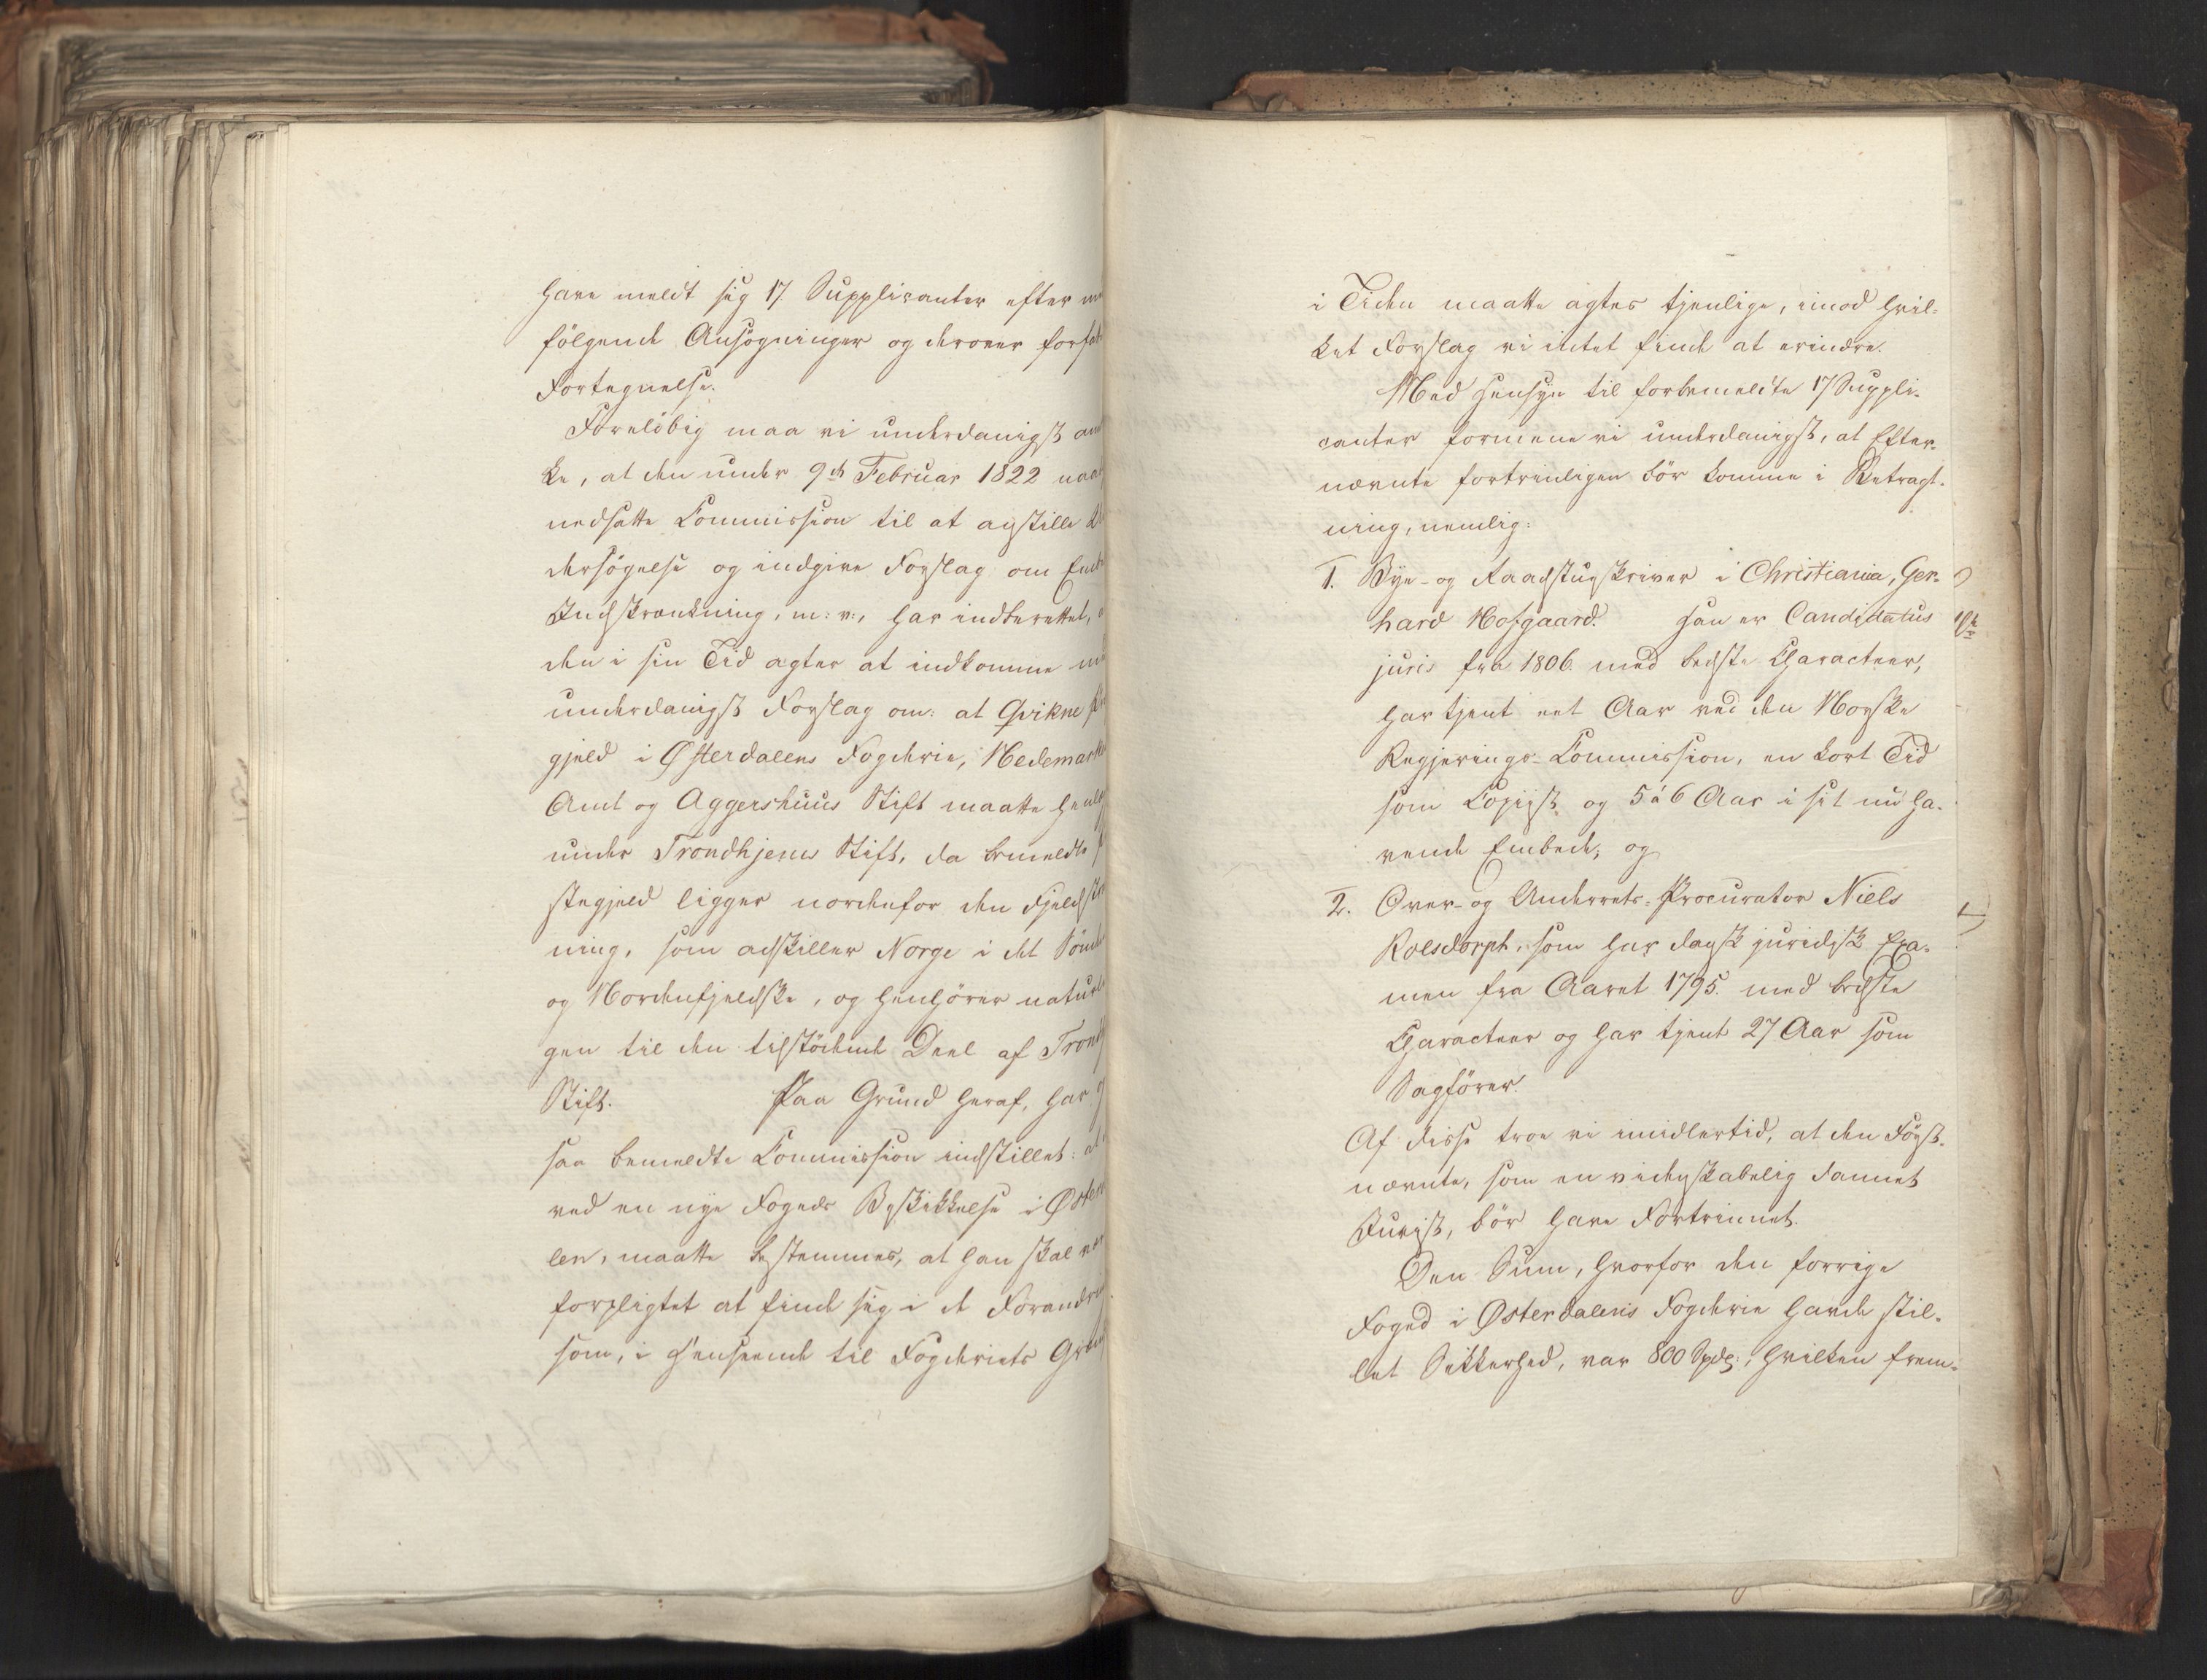 have meldt sig 17 Supplicanter efter
følgende Ansøgninger og derover forfat
Fortegnelse.
Foreløbig maa vi underdanigst an
ke, at den under 9de Februar 1822 naad
nedsatte Commission til at anstille
dersøgelse og indgive Forslag om Emb
Indskrænkning, m: v:, har indberettet,
den i sin Tid agter at indkomme
underdanigst Forslag om: at Qvikne
gjeld i Østerdalens Fogderie, Hedemark
Amt og Aggershuus Stift maatte henl
under Trondhjems Stift, da bemeldte
stegjeld ligger nordenfor den Fjeldst
ning, som adskiller Norge i det Sønd
og Nordenfjeldske, og henhører naturl
gen til den tilstødende Deel af Trond
Stift. Paa Grund heraf, har
saa bemeldte Commission indstillet:
ved en nye Fogeds Beskikkelse i Øster
len, maatte bestemmes, at han skal
forpligtet at finde sig i de Forandr
som, i Henseende til Fogderiets Græn
i Tiden maatte agtes tjenlige, imod hvil-
ket Forslag vi intet finde at erindre.
Med Hensyn til forbemeldte 17 Suppli-
canter formene vi underdanigst, at Efter-
nævnte fortrinligen bør komme i Betragt-
ning, nemlig:
1. Bye- og Raadstuskriver i Christiania, Ger-
hard Hofgaard. Han er Candidatus
juris fra 1806. med bedste Characteer,
har tjent eet Aar ved den Norske
Regjerings-Commission, en kort Tid
som Copiist og 5 á 6 Aar i sit nu ha-
vende Embede; og
2. Over- og Underrets-Procurator Niels
Roesdorph, som har dansk juridisk Exa-
men fra Aaret 1795. med bedste
Characteer og har tjent 27 Aar som
Sagfører.
Af disse troe vi imidlertid, at den Først-
nævnte, som en videnskabelig dannet
Jurist, bør have Fortrinnet.
Den Sum, hvorfor den forrige
Foged i Østerdalens Fogderie havde stil-
let Sikkerhed, var 800 Spdlr:, hvilken frem-